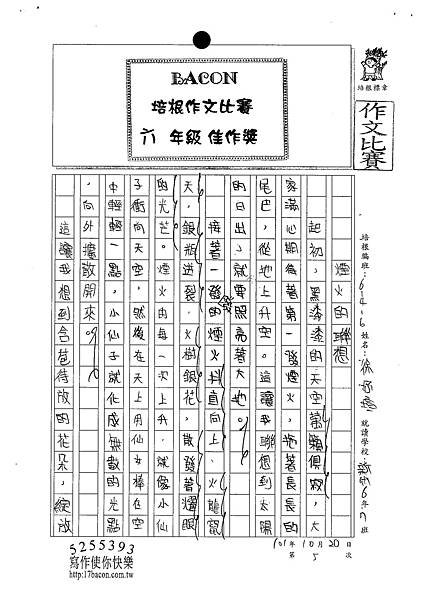 BACON
培根作文比賽
六 年級 佳作獎
培根標章
作文比賽
培根編班：614.6 姓名：徐 就讀學校： 6年7班
煙火的聯想
起初，黑漆漆的天空萬籟俱寂，大
家滿心期待著第一發煙火，拖著長長的
尾巴，從地上升空。這讓我聯想到太陽
的日出，就要照亮著大地。
接著一發發的煙火抖直向上，火龍竄
天，銀瓶迸裂，火樹銀花，散發著耀眼
的光芒。煙火由每一次上升，就像小仙
子衝向天空，然後在天上用仙女棒在空
中輕輕一點，小仙子就化成無數的光點
，向外擴散開來。
這讓我想到含苞待放的花朵，綻放
101年10月20日
第 5 次
5255393
寫作使你快樂
http://17bacon.com.tw